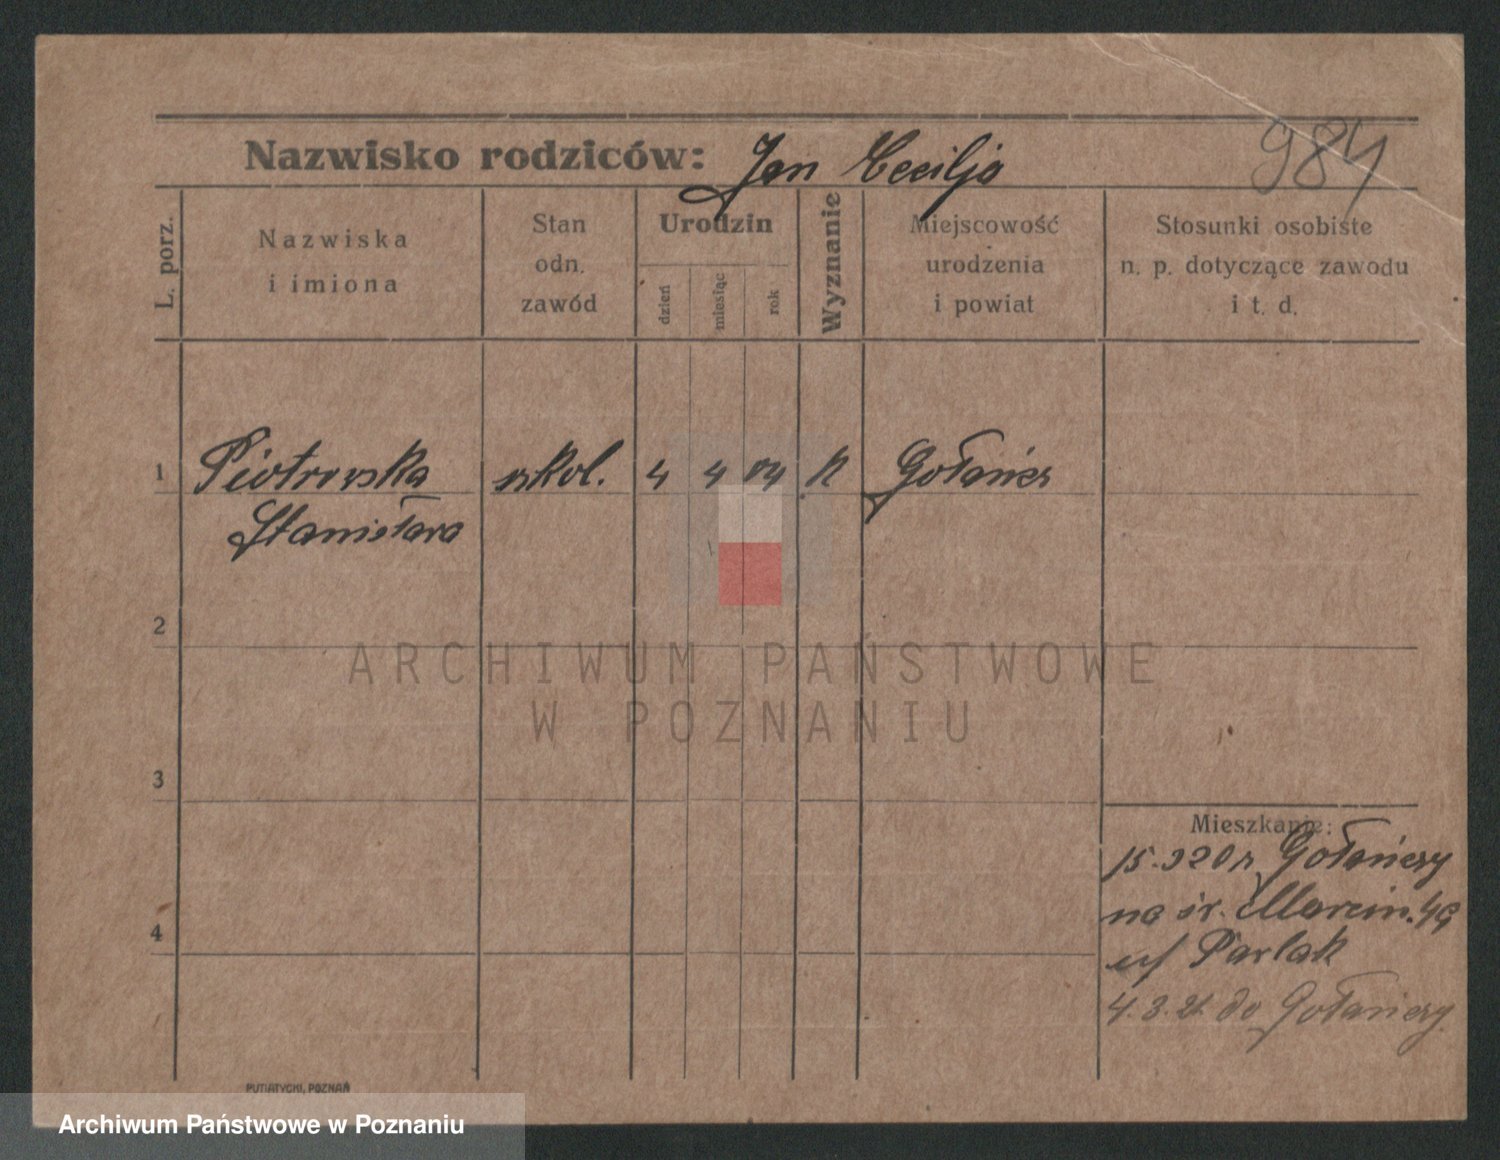 Nazwisko rodziców: Jan Cecilja
984
L. porz.
Nazwiska
i imiona
Stan
odn.
zawód
Urodzin
dzień
miesiąc
rok
Wyznanie
Miejscowość
urodzenia
i powiat
Stosunki osobiste
n. p. dotyczące zawodu
i t. d.
1 Piotrowska szkol. 4 4 04 K Gołańcz
Stanisława
2
ARCHIWUM PAŃSTWOWE
W POZNANIU
3
Mieszkanie:
15. 920 z Gołańczy
na św. Marcin. 49
4
u/ Pawlak
4. 3. 21. do Gołańczy
PUTIATYCKI, POZNAŃ
Archiwum Państwowe w Poznaniu